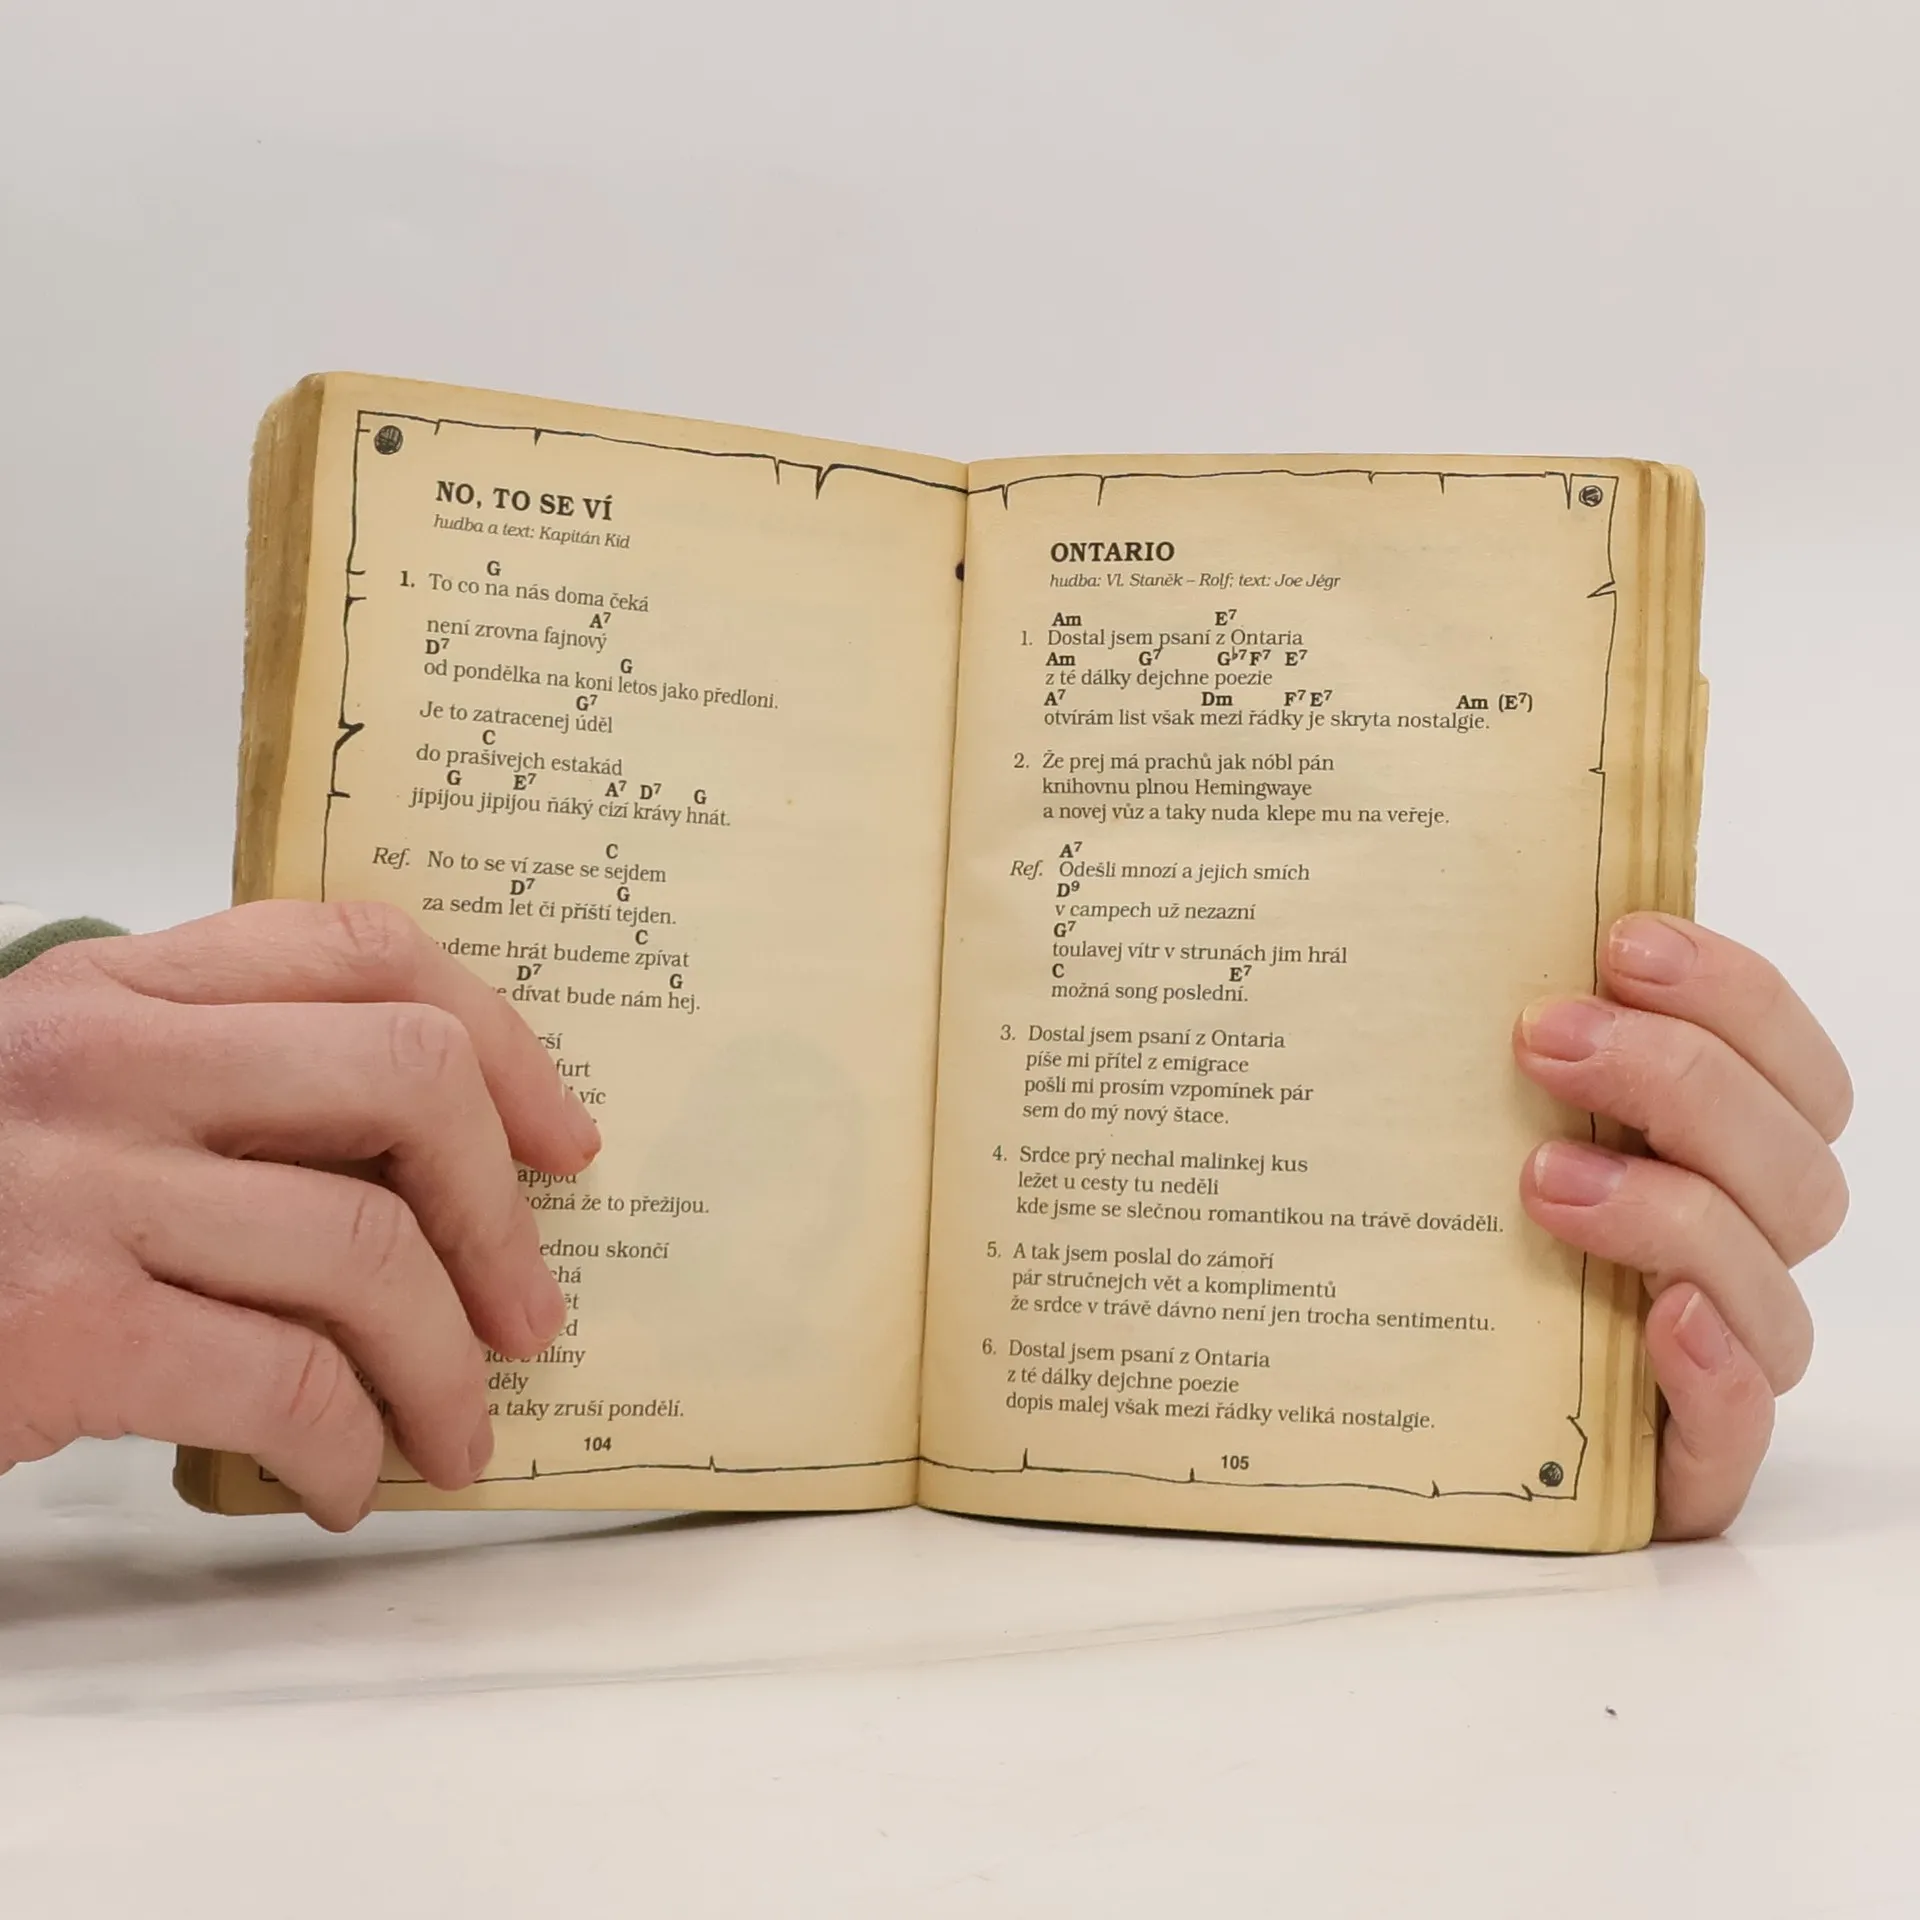 NO, TO SE VÍ
hudba a text: Kapitán Kid
G
1. To co na nás doma čeká
A7
není zrovna fajnový
D7 G
od pondělka na koni letos jako předloni.
G7
Je to zatracenej úděl
C
do prašivejch estakád
G E7 A7 D7 G
jipijou jipijou ňáký cizí krávy hnát.
C
Ref. No to se ví zase se sejdem
D7 G
za sedm let či příští tejden.
C
budeme hrát budeme zpívat
D7 G
dívat bude nám hej.
furt
víc
možná že to přežijou.
jednou skončí
hlíny
a taky zruší pondělí.
104
ONTARIO
hudba: Vl. Staněk – Rolf; text: Joe Jégr
Am E7
1. Dostal jsem psaní z Ontaria
Am G7 G♭7 F7 E7
z té dálky dejchne poezie
A7 Dm F7 E7 Am (E7)
otvírám list však mezi řádky je skryta nostalgie.
2. Že prej má prachů jak nóbl pán
knihovnu plnou Hemingwaye
a novej vůz a taky nuda klepe mu na veřeje.
A7
Ref. Odešli mnozí a jejich smích
D9
v campech už nezazní
G7
toulavej vítr v strunách jim hrál
C E7
možná song poslední.
3. Dostal jsem psaní z Ontaria
píše mi přítel z emigrace
pošli mi prosím vzpomínek pár
sem do mý nový štace.
4. Srdce prý nechal malinkej kus
ležet u cesty tu neděli
kde jsme se slečnou romantikou na trávě dováděli.
5. A tak jsem poslal do zámoří
pár stručnejch vět a komplimentů
že srdce v trávě dávno není jen trocha sentimentu.
6. Dostal jsem psaní z Ontaria
z té dálky dejchne poezie
dopis malej však mezi řádky veliká nostalgie.
105